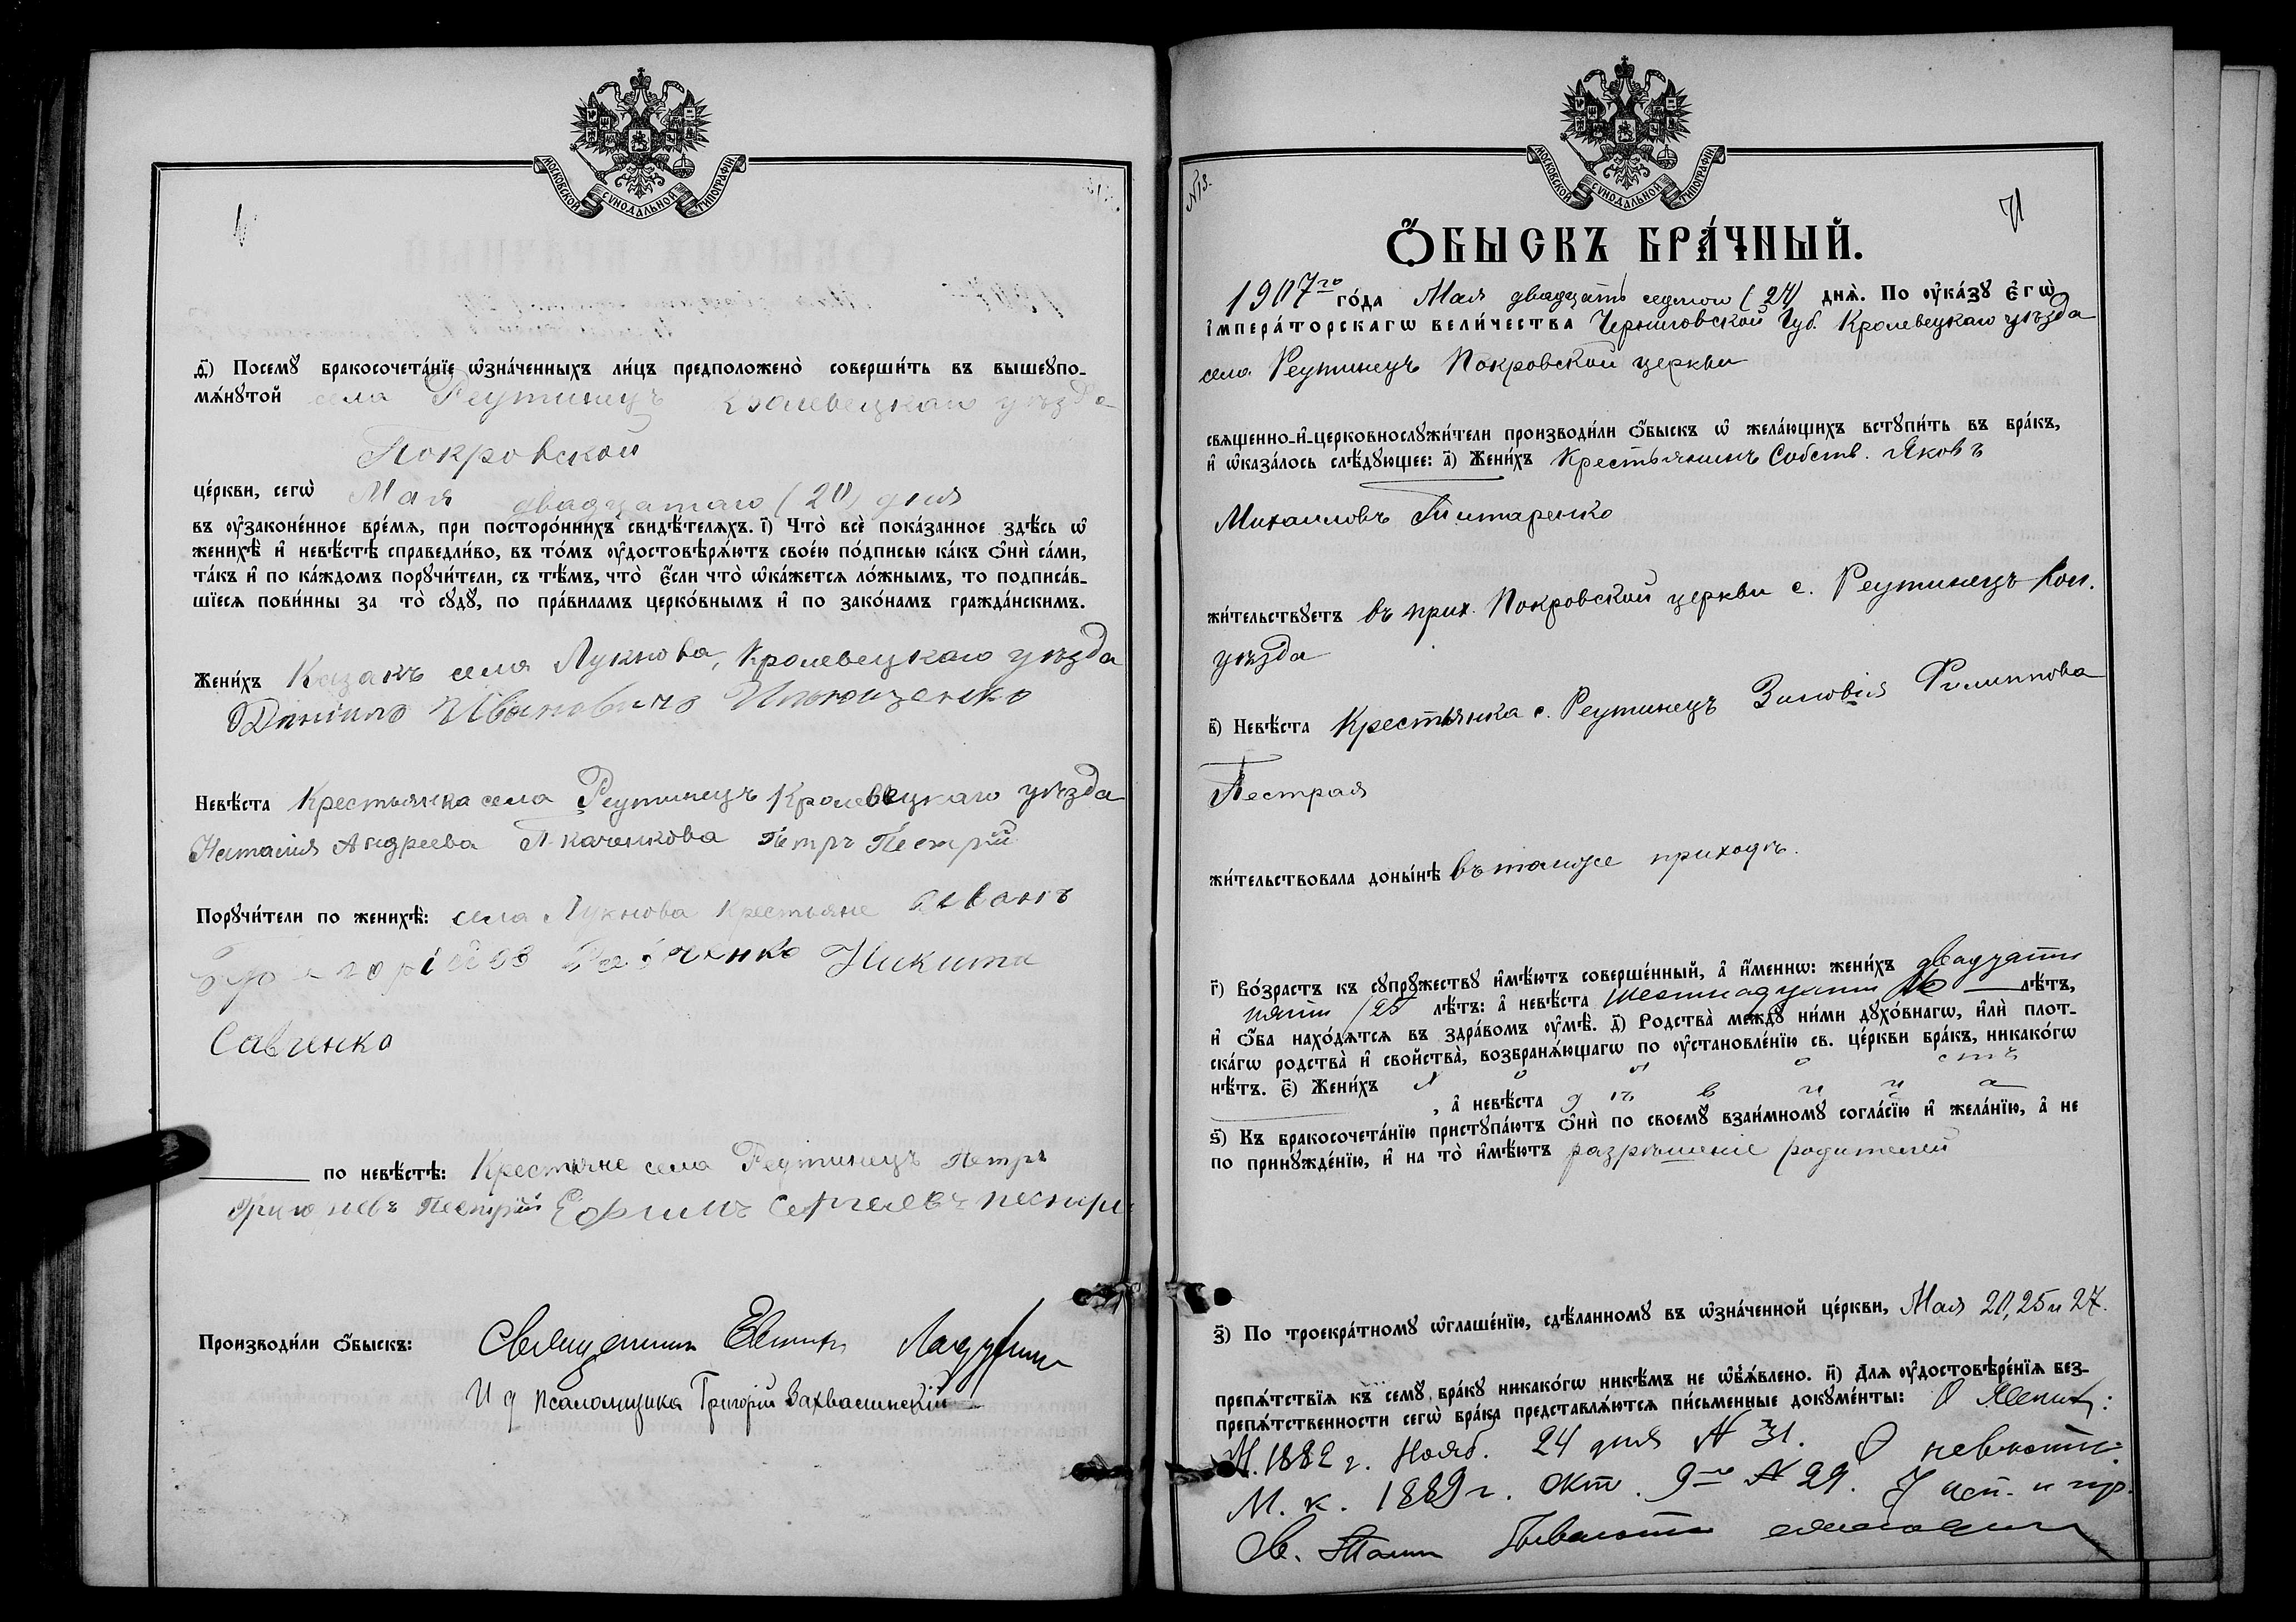 МОСКОВСКОЙ СѴНОДАЛЬНОЙ ТИПОГРАФІИ
д҃і) Посемꙋ бракосочета́нїе ѡ҆зна́ченныхъ ли́цъ предположено̀ соверши́ть въ вышеꙋпо-
мѧ́нꙋтой села Реутинецъ Кролевецкаго уѣзда
Покровской
це́ркви, сегѡ̀ Мая двадцатаго (20) дня
въ ᲂу҆законе́нное вре́мѧ, при посторо́ннихъ свидѣ́телѧхъ. і҃) Что̀ всѐ пока́занное здѣ́сь ѡ҆
женихѣ̀ и҆ невѣ́стѣ справедли́во, въ то́мъ ᲂу҆достовѣрѧ́ютъ свое́ю по́дписью ка́къ ѻ҆нѝ са́ми,
та́къ и҆ по ка́ждомъ порꙋчи́тели, съ тѣ́мъ, что̀ є҆́сли что̀ ѡ҆ка́жетсѧ ло́жнымъ, то подписа́в-
шїесѧ пови́нны за то̀ сꙋдꙋ̀, по пра́виламъ церко́внымъ и҆ по зако́намъ гражда́нскимъ.
Жени́хъ Казакъ села Лукнова, Кролевецкаго уѣзда
Данiилъ Ивановичъ Ильющенко
Невѣ́ста Крестьянка села Реутинецъ Кролевецкаго уѣзда
Наталія Андреева Ткаченкова Петръ Пестрій
Порꙋчи́тели по женихѣ̀: села Лукнова крестьяне Иванъ
Никита
Савченко
по невѣ́стѣ: Крестьяне села Реутинецъ Петръ
Пестрій Ефимъ Сергеевъ Пестри
Производи́ли ѻ҆́быскъ: Священникъ Евгени
И д псаломщика Григорій
№13.
МОСКОВСКОЙ СѴНОДАЛЬНОЙ ТИПОГРАФІИ
71
Ѻ҆́БЫСКЪ БРА́ЧНЫЙ.
1907го го́да Мая двадцать седмого (27) днѧ̀. По ᲂу҆ка́зꙋ є҆гѡ̀
і҆мпера́торскагѡ вели́чества Черниговской Губ. Кролевецкаго уѣзда
села Реутинецъ Покровской церкви
свѧщенно-и҆-церковнослꙋжи́тели производи́ли ѻ҆́быскъ ѡ҆ жела́ющихъ встꙋпи́ть въ бра́къ,
и҆ ѡ҆каза́лось слѣ́дꙋющее: а҃) Жени́хъ Крестьянинъ Собств. Яковъ
Михаиловъ Титаренко
жи́тельствꙋетъ въ прих. Покровской церкви с. Реутинецъ Кол.
уѣзда
в҃) Невѣ́ста Крестьянка с. Реутинецъ Зиновія Филиппова
Пестрая
жи́тельствовала доны́нѣ въ томже приходѣ.
г҃) Во́зрастъ къ сꙋпрꙋ́жествꙋ и҆мѣ́ютъ соверше́нный, а҆ и҆́меннѡ: жени́хъ двадцати
пяти (25 лѣ́тъ: а҆ невѣ́ста шестнадцати 16 лѣ́тъ,
и҆ ѻ҆́ба нахо́дѧтсѧ въ здра́вомъ ᲂу҆мѣ̀. д҃) Родства̀ междꙋ̀ ни́ми дꙋхо́внагѡ, и҆лѝ плот-
ска́гѡ родства̀ и҆ свойства̀, возбранѧ́ющагѡ по ᲂу҆становле́нїю св. це́ркви бра́къ, никако́гѡ
нѣ́тъ. є҃) Жени́хъ х о л о стъ
, а҆ невѣ́ста д ѣ в и ц а
ѕ҃) Къ бракосочета́нїю пристꙋпа́ютъ ѻ҆нѝ по своемꙋ̀ взаи́мномꙋ согла́сїю и҆ жела́нїю, а҆ не
по принꙋжде́нїю, и҆ на то̀ и҆мѣ́ютъ разрѣшеніе родителей
з҃) По троекра́тномꙋ ѡ҆глаше́нїю, сдѣ́ланномꙋ въ ѡ҆зна́ченной це́ркви, Мая 20, 25 и 27.
препѧ́тствїѧ къ семꙋ̀ бра́кꙋ никако́гѡ никѣ́мъ не ѡ҆б̾ѧ́влено. и҃) Длѧ ᲂу҆достовѣре́нїѧ без-
препѧ́тственности сегѡ̀ бра́ка представлѧ́ютсѧ пи́сьменные докꙋме́нты: О Жених:
М. 1882 г. Нояб. 24 дня № 31. О невѣстѣ:
М. к. 1889 г. Окт. 9го № 29. У исп. и пр.
Св. Таинъ бываютъ